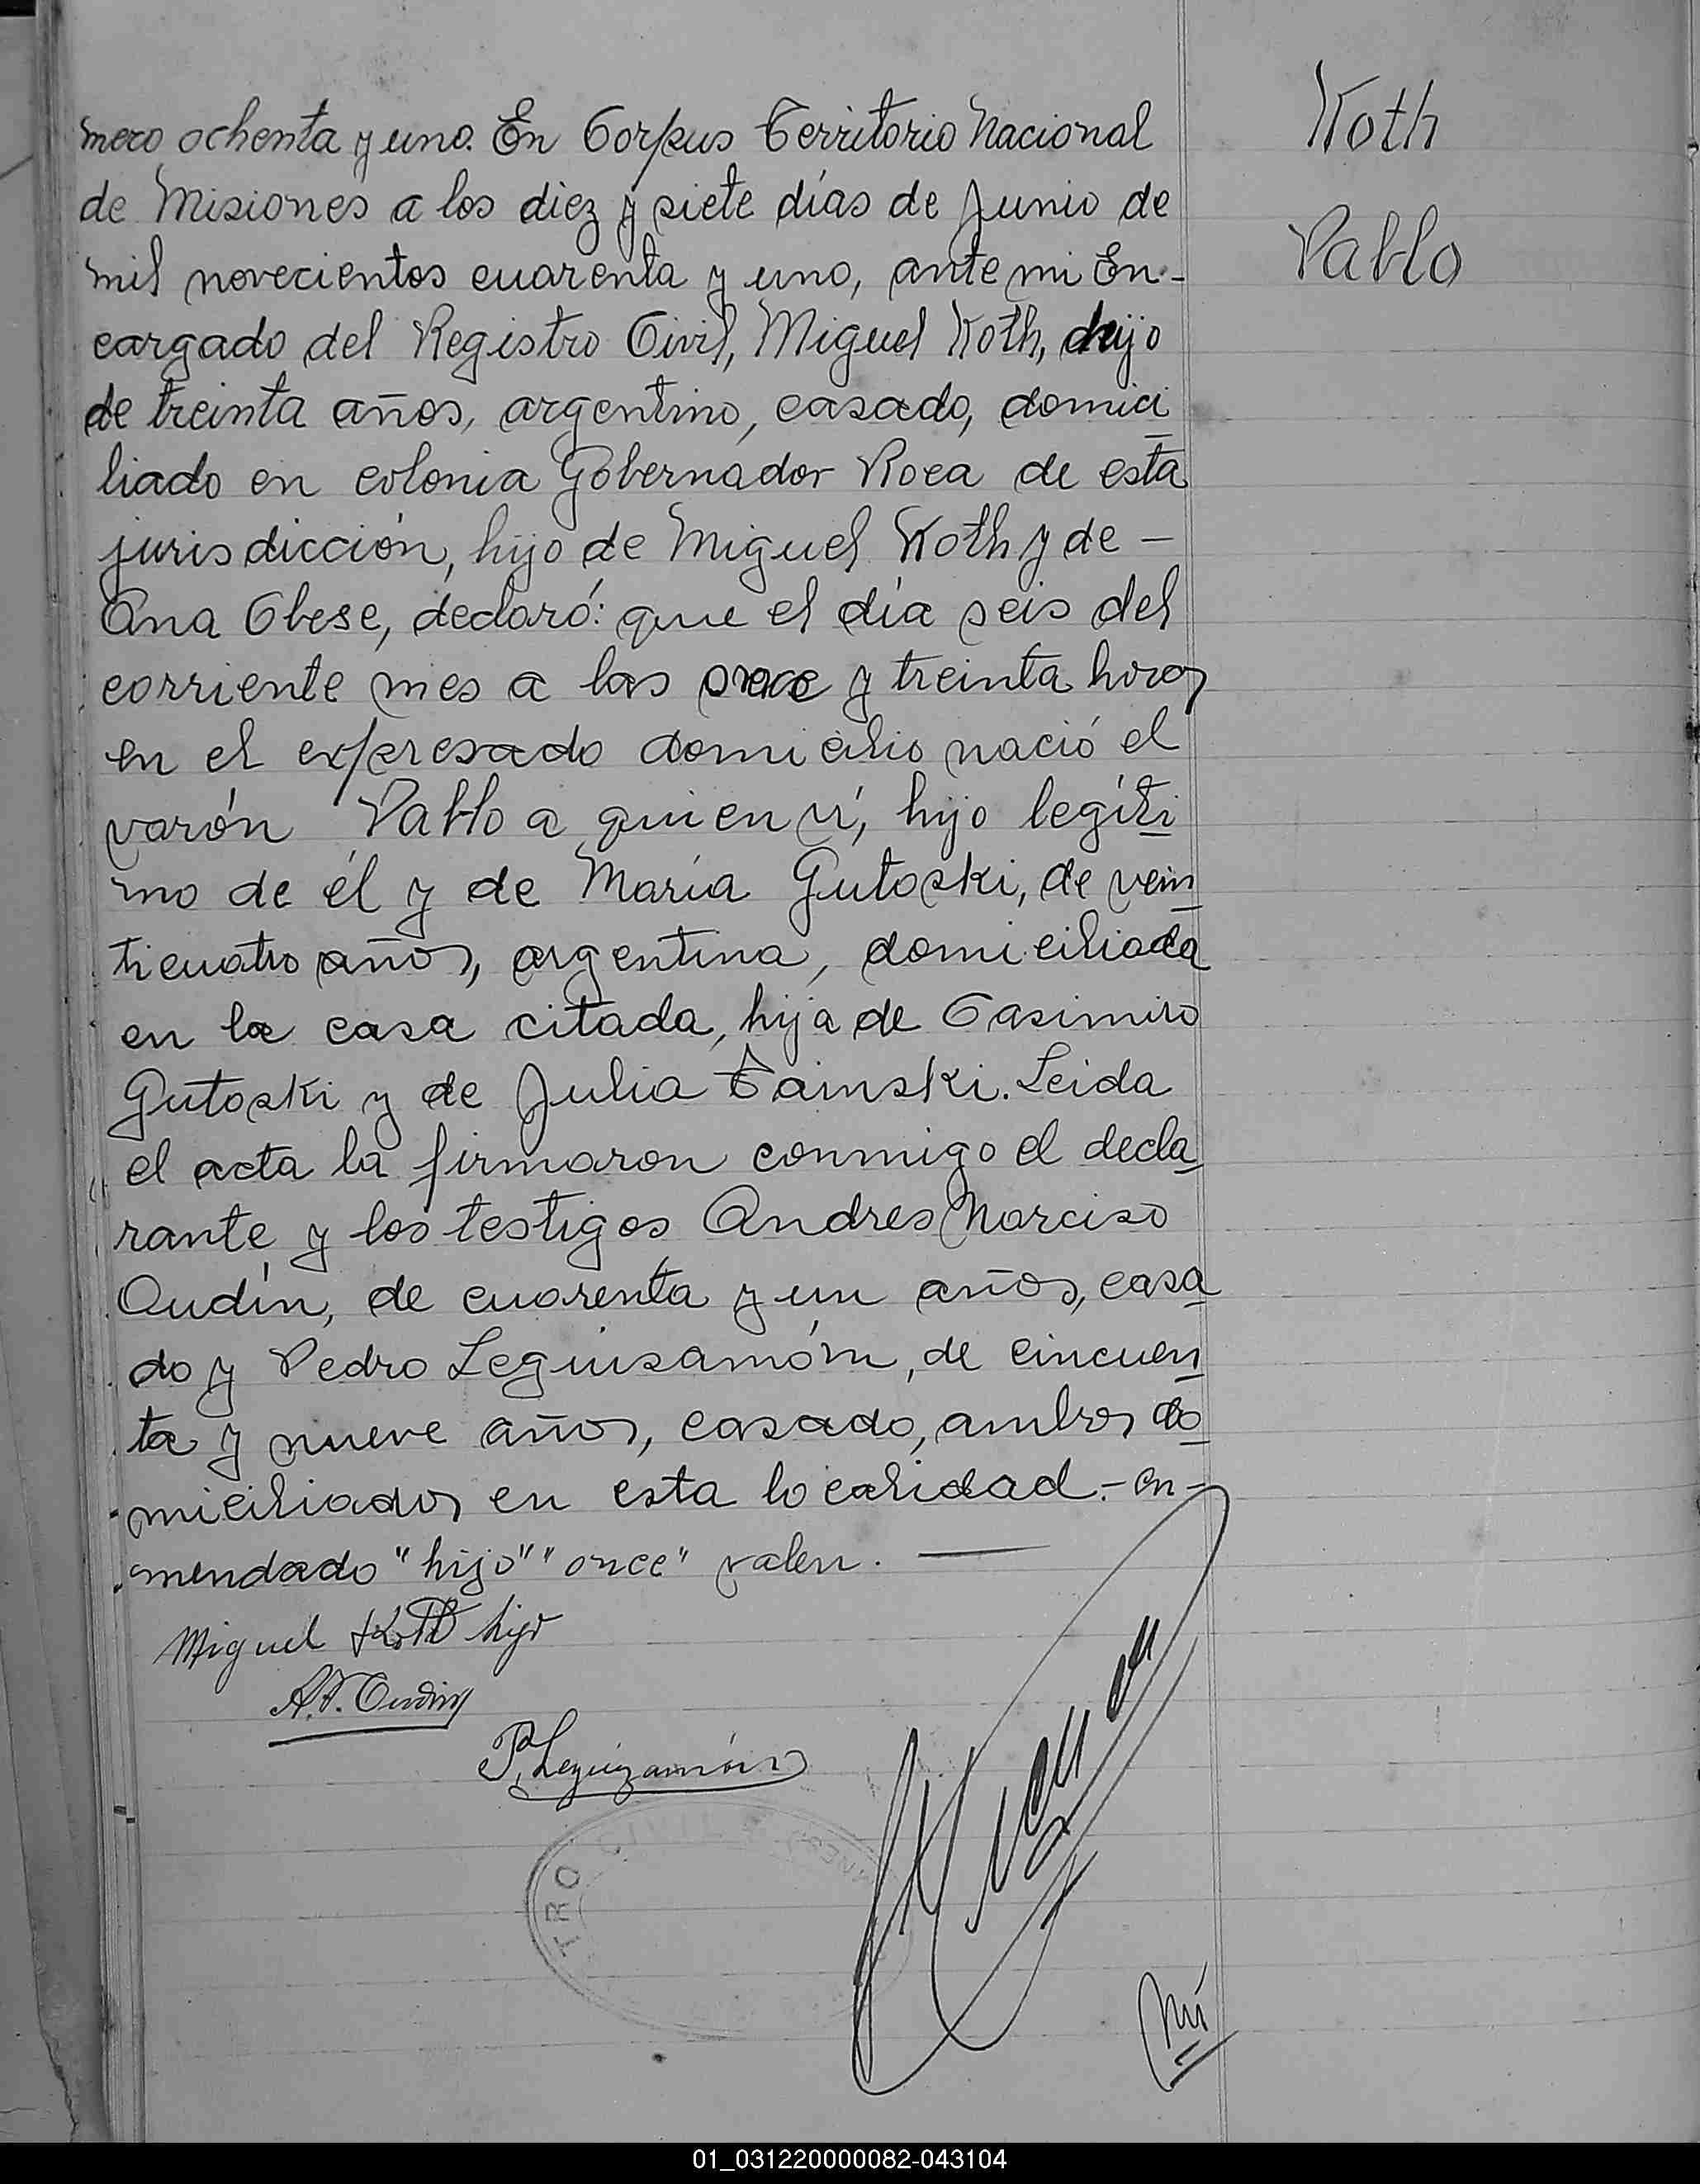 mero ochenta y uno. En Corpus Territorio Nacional
Koth
de Misiones a los diez y siete días de Junio de
Pablo
mil novecientos cuarenta y uno, ante mi En-
cargado del Registro Civil, Miguel Koth, hijo
de treinta años, argentino, casado, domici
liado en colonia Gobernador Roca de esta
jurisdicción, hijo de Miguel Koth y de —
Ana Obese, declaró: que el día seis del
corriente mes a las once y treinta horas
en el expresado domicilio nació el
varón Pablo a quien ví, hijo legíti
mo de él y de María Gutoski, de vein
ticuatro años, argentina, domiciliada
en la casa citada, hija de Casimiro
Gutoski y de Julia Tainski. Leida
el acta la firmaron conmigo el decla
rante y los testigos Andres Narciso
Oudín, de cuarenta y un años, casa
do y Pedro Leguisamóm, de cincuen
ta y nueve años, casado, ambos do
miciliados en esta localidad.- en-
mendado "hijo" "once" valen. —
Miguel Koth hijo
A.N. Oudin
P. Leguizamón
TRO CIVIL
Nú
01_031220000082-043104